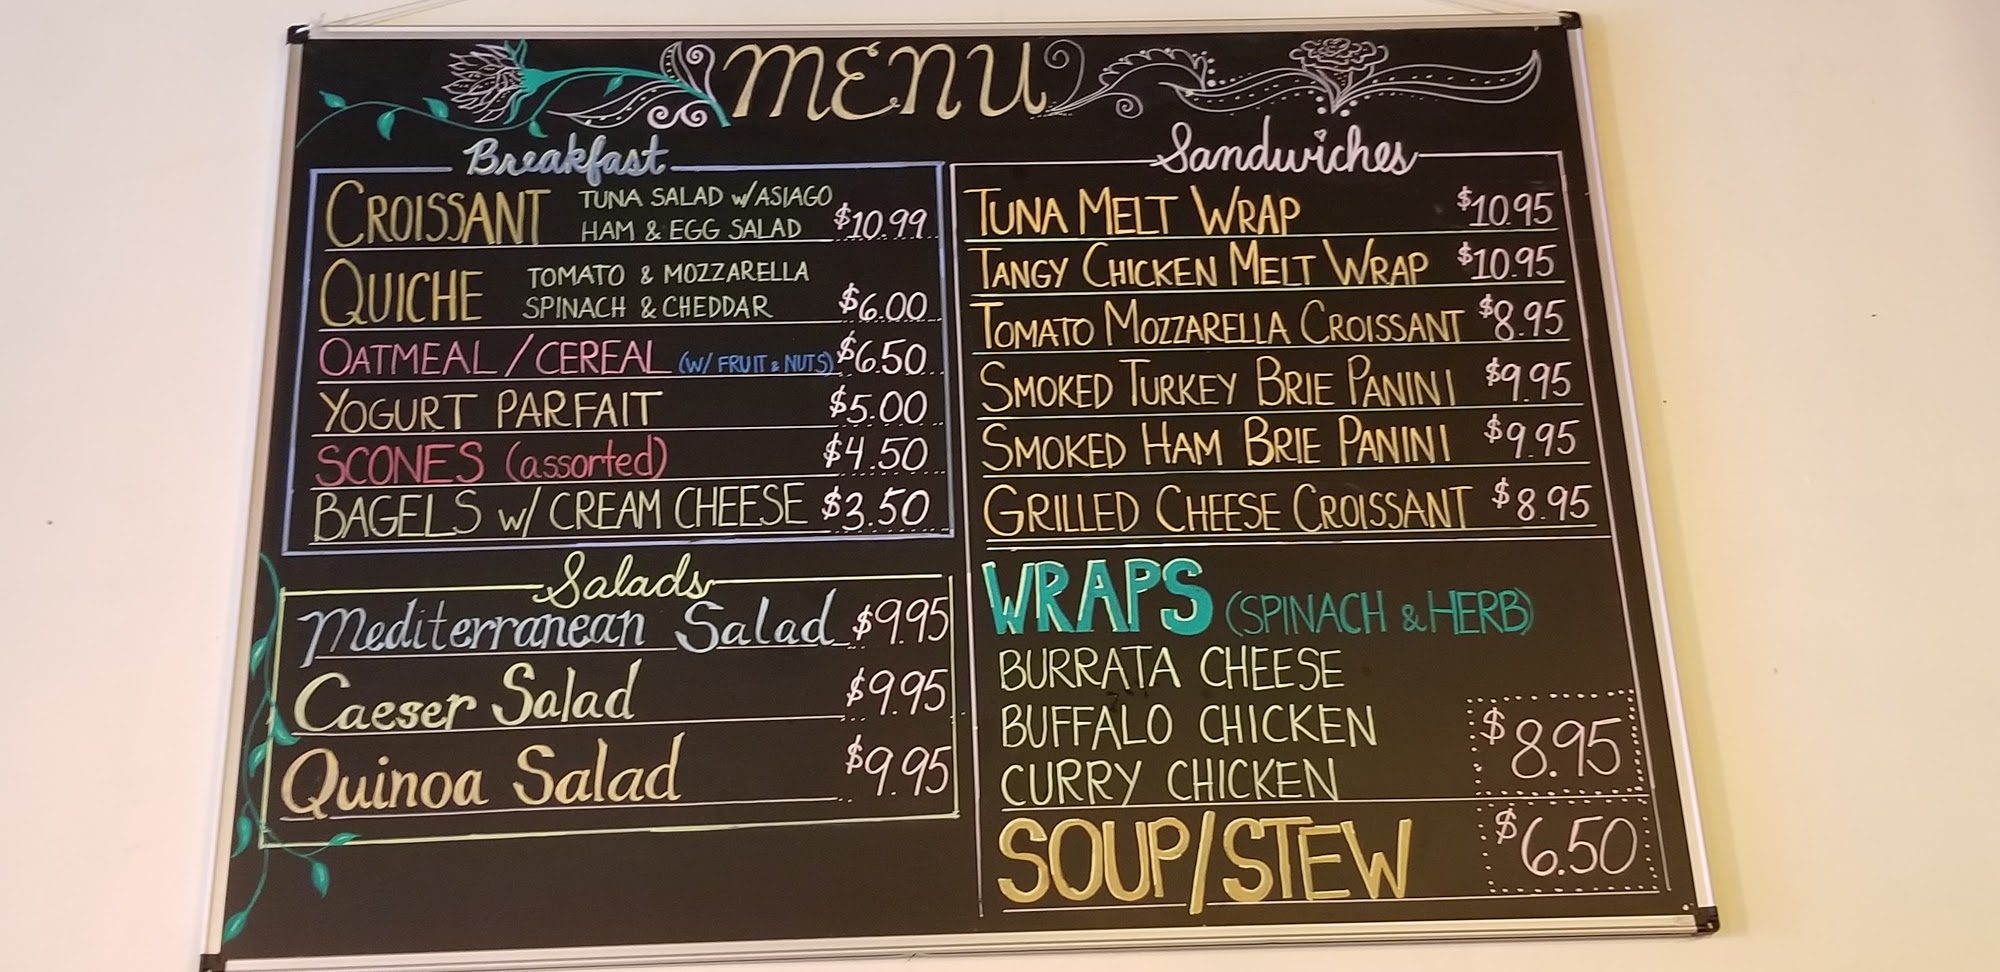 MENU
Breakfast
CROISSANT TUNA SALAD w/ASIAGO
HAM & EGG SALAD $10.99
QUICHE TOMATO & MOZZARELLA
SPINACH & CHEDDAR $6.00
OATMEAL / CEREAL (W/ FRUIT & NUTS) $6.50
YOGURT PARFAIT $5.00
SCONES (assorted) $4.50
BAGELS w/ CREAM CHEESE $3.50
Salads
Mediterranean Salad $9.95
Caeser Salad $9.95
Quinoa Salad $9.95
Sandwiches
TUNA MELT WRAP $10.95
TANGY CHICKEN MELT WRAP $10.95
TOMATO MOZZARELLA CROISSANT $8.95
SMOKED TURKEY BRIE PANINI $9.95
SMOKED HAM BRIE PANINI $9.95
GRILLED CHEESE CROISSANT $8.95
WRAPS (SPINACH & HERB)
BURRATA CHEESE
BUFFALO CHICKEN $8.95
CURRY CHICKEN
SOUP/STEW $6.50